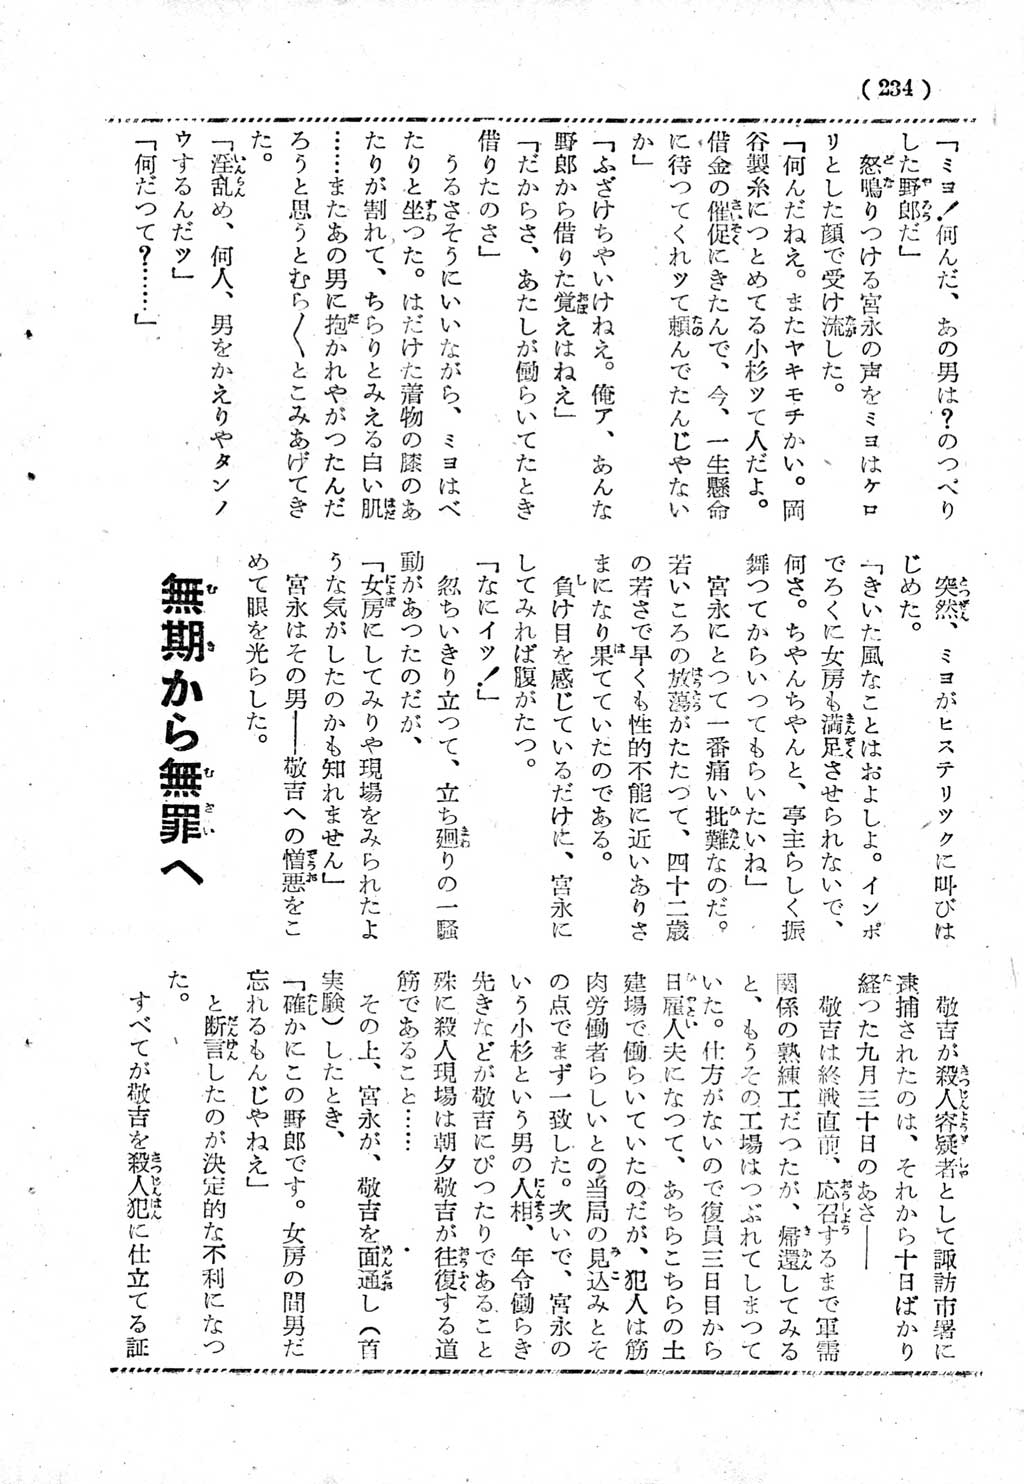 (234)
「ミヨ！何んだ、あの男は？のつぺり
した野郎だ」
怒鳴りつける宮永の声をミヨはケロ
リとした顔で受け流した。
「何んだねえ。またヤキモチかい。岡
谷製糸につとめてる小杉ッて人だよ。
借金の催促にきたんで、今、一生懸命
に待つてくれッて頼んでたんじゃない
か」
「ふざけちやいけねえ。俺ア、あんな
野郎から借りた覚えはねえ」
「だからさ、あたしが働らいてたとき
借りたのさ」
うるさそうにいいながら、ミヨはべ
たりと坐つた。はだけた着物の膝のあ
たりが割れて、ちらりとみえる白い肌
……またあの男に抱かれやがつたんだ
ろうと思うとむら〱とこみあげてき
た。
「淫乱め、何人、男をかえりやタンノ
ウするんだッ」
「何だつて？……」
突然、ミヨがヒステリツクに叫びは
じめた。
「きいた風なことはおよしよ。インポ
でろくに女房も満足させられないで、
何さ。ちやんちやんと、亭主らしく振
舞つてからいつてもらいたいね」
宮永にとつて一番痛い批難なのだ。
若いころの放蕩がたたつて、四十二歳
の若さで早くも性的不能に近いありさ
まになり果てていたのである。
負け目を感じているだけに、宮永に
してみれば腹がたつ。
「なにイッ！」
忽ちいきり立つて、立ち廻りの一騒
動があつたのだが、
「女房にしてみりや現場をみられたよ
うな気がしたのかも知れません」
宮永はその男――敬吉への憎悪をこ
めて眼を光らした。
無期から無罪へ
敬吉が殺人容疑者として諏訪市署に
逮捕されたのは、それから十日ばかり
経つた九月三十日のあさ――
敬吉は終戦直前、応召するまで軍需
関係の熟練工だつたが、帰還してみる
と、もうその工場はつぶれてしまつて
いた。仕方がないので復員三日目から
日雇人夫になつて、あちらこちらの土
建場で働らいていたのだが、犯人は筋
肉労働者らしいとの当局の見込みとそ
の点でまず一致した。次いで、宮永の
いう小杉という男の人相、年令働らき
先きなどが敬吉にぴつたりであること
殊に殺人現場は朝夕敬吉が往復する道
筋であること……
その上、宮永が、敬吉を面通し（首
実験）したとき、
「確かにこの野郎です。女房の間男だ
忘れるもんじやねえ」
と断言したのが決定的な不利になつ
た。
すべてが敬吉を殺人犯に仕立てる証